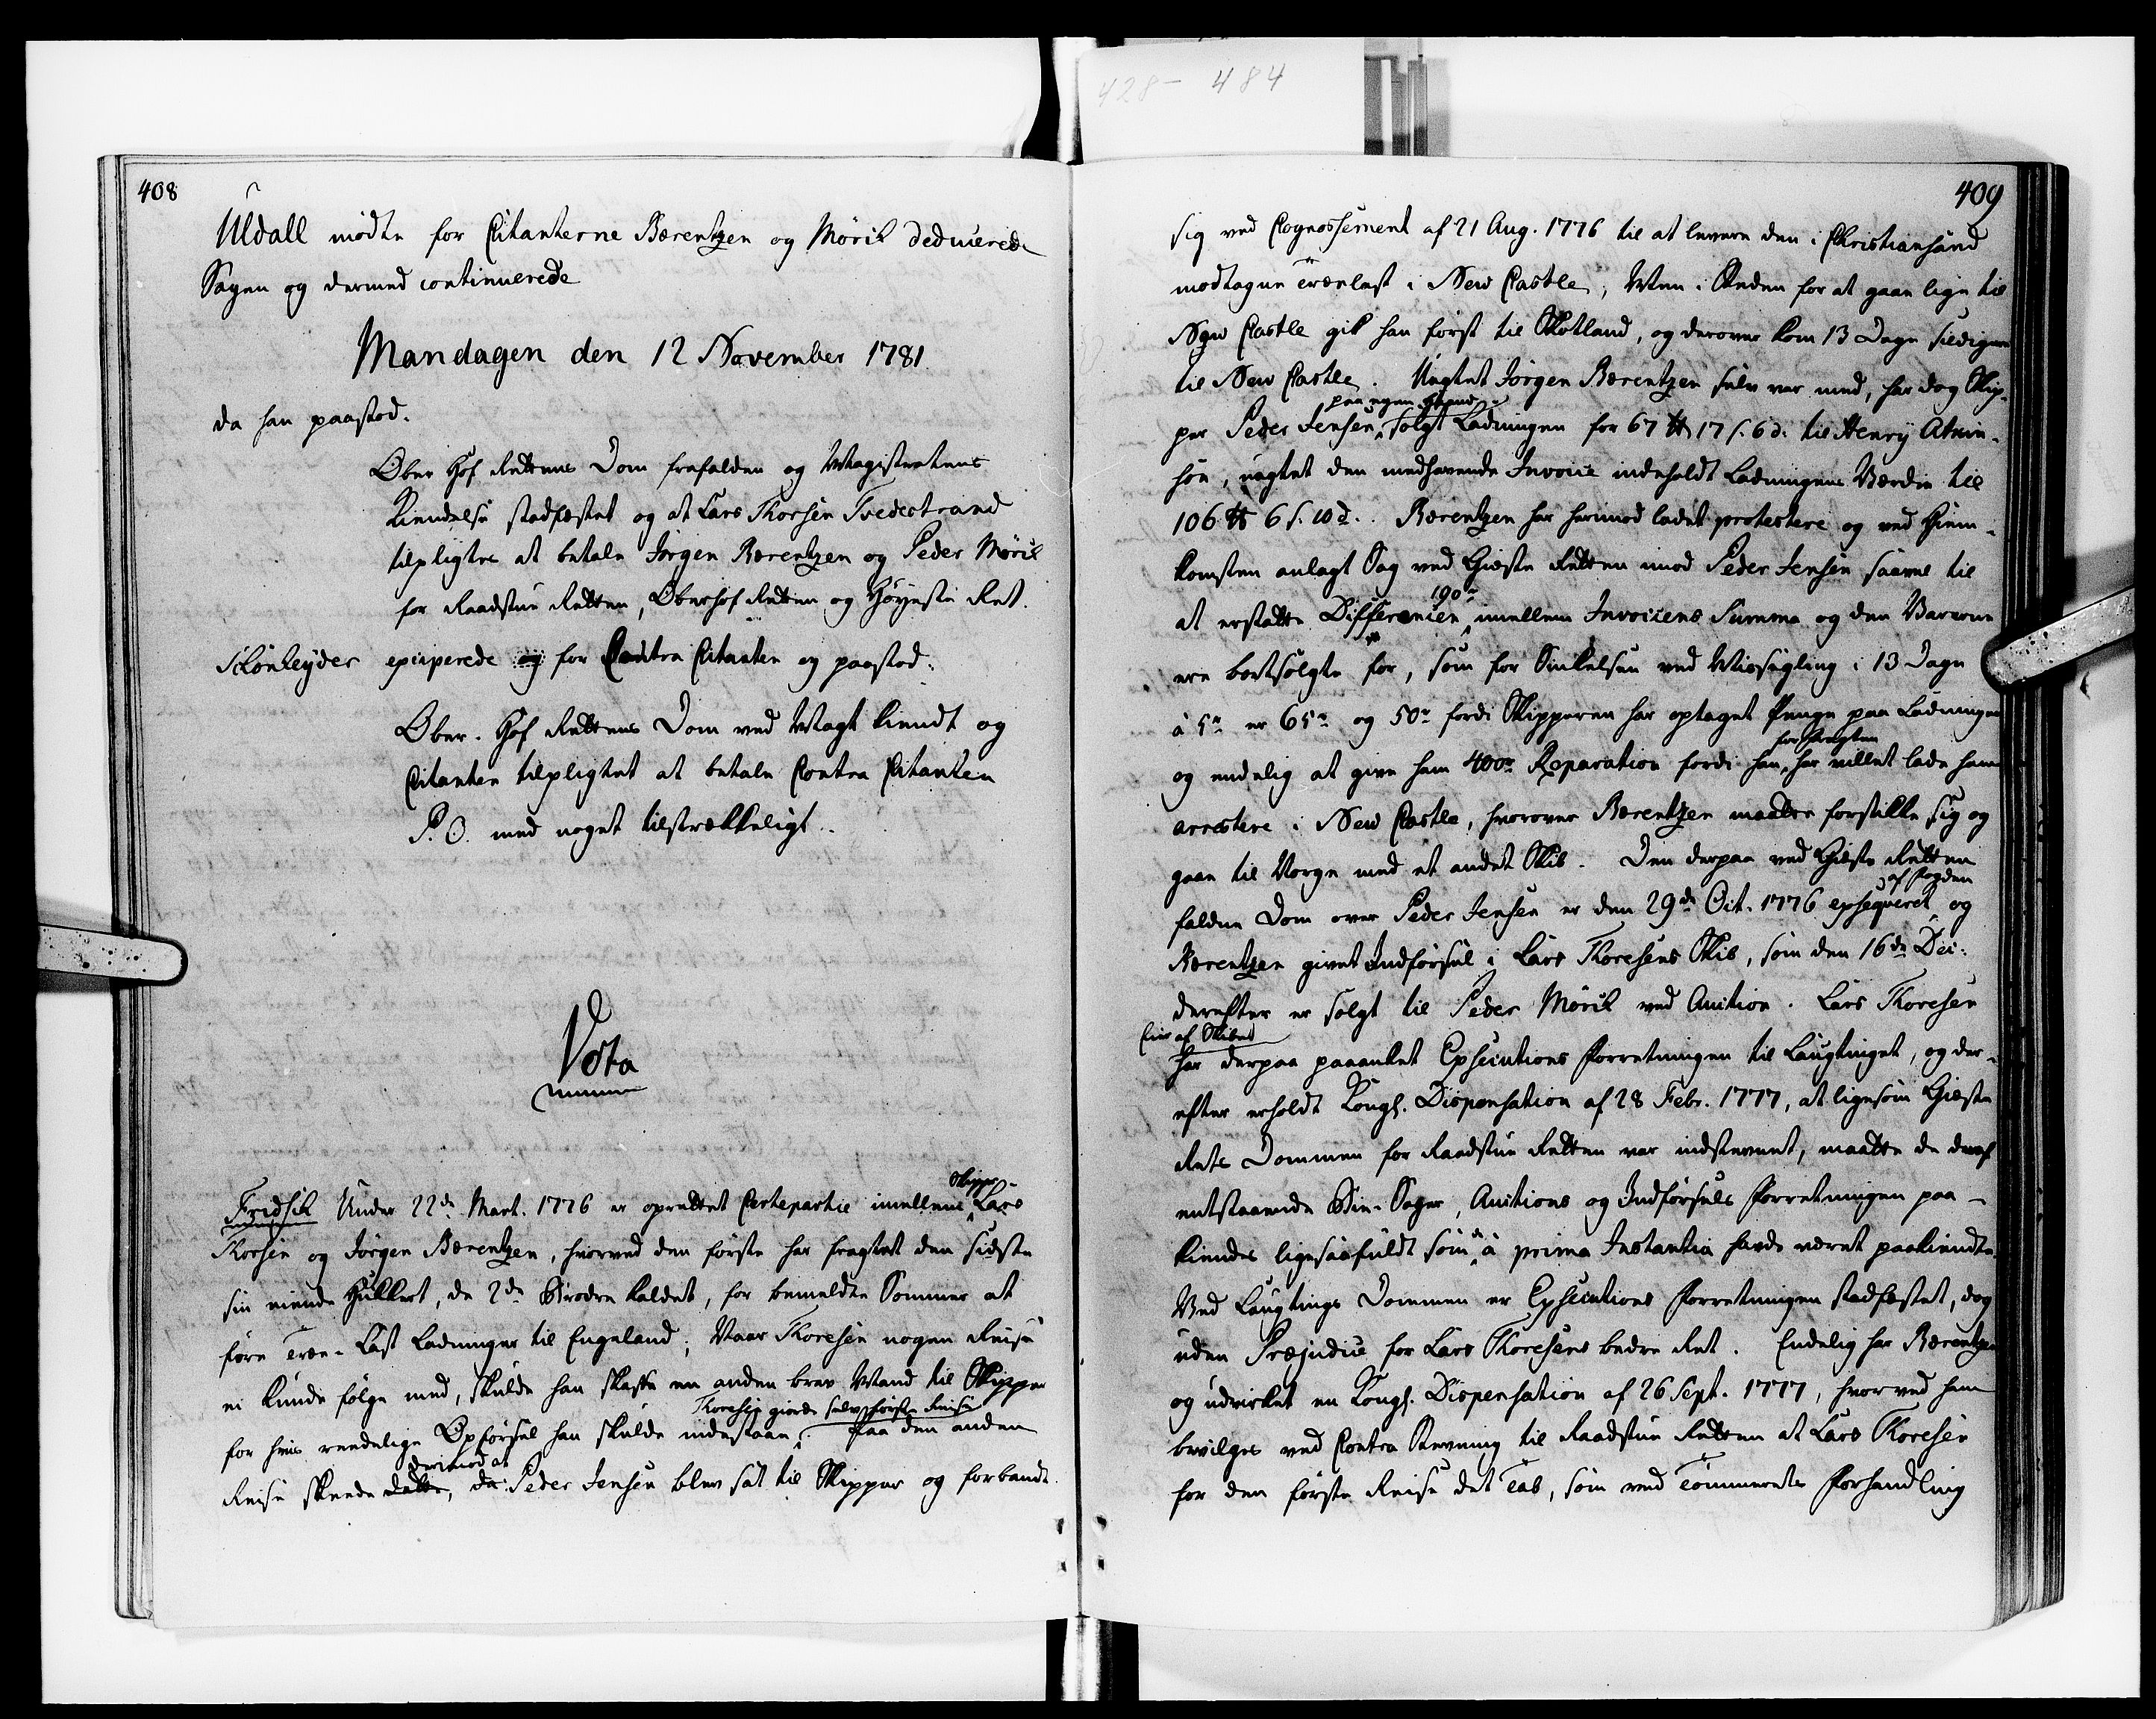 428- 484
408
Uldall mødte for Citanterne Bærentzen og Mørik deducerede
Sagen og dermed continuerede
Mandagen den 12 November 1781
da han paastod.
Ober Hof Rettens Dom frafalden og Magistratens
Kiendelse stadfæstet og at Lars Thorsen Tvedestrand
tilpligtes at betale Jørgen Bærentzen og Peder Mørik
for Raadstue Retten, Oberhof Retten og Høyeste Ret.
Schønheyder exciperede og for Contra Citanten og paastod.
Ober-Hof Rettens Dom ved Magt kiendt og
Citanten tilpligtet at betale Contra Citanten
P. O. med noget tilstrækkeligt.
Vota
Skipper
Fridsch Under 22de Mart. 1776 er oprettet Certepartie imellem Lars
Thorsen og Jørgen Bærentzen, hvorved den første har fragtet den sidste
sin eiende Hukkert, de 2de Brødre kaldet, for bemeldte Sommer at
føre Træ-Last Ladninger til Engeland; Naar Thoresen nogen Reise
ei kunde følge med, skulde han skaffe en anden brav Mand til Skipper
Thoresen giorde selv første Reise
for hvis reedelige Opførsel han skulde indestaae. Paa den anden
derimod at
Reise skeede dette, da Peder Jensen blev sat til Skipper og forbandt
409
sig ved Cognossement af 21 Aug. 1776 til at levere den i Christiansand
modtagne Trælast i New Castle; Men i Steden for at gaae lige til
New Castle gik han først til Skotland, og derover kom 13 Dage sildigere
til New Castle. Uagtet Jørgen Bærentzen selv var med, har dog Skip-
paa egen Haand
per Peder Jensen solgt Ladningen for 67 ℔ 17 s. 6 d. til Henry Atkin-
son, uagtet den medhavende Invoice indeholdt Ladningens Værdie til
106 ℔ 6 s. 10 d. Bærentzen har herimod ladet protestere og ved Hiem-
komsten anlagt Sag ved Giæste Retten imod Peder Jensen saavel til
190 r
at erstatte Differencen imellem Invoicens Summa og den Varerne
ere bortsolgte for, som for Sinkelsen ved Missegling i 13 Dage
à 5 r er 65 r og 50 r fordi Skipperen har optaget Penge paa Ladningen
for Fragten
og endelig at give ham 400 r Reparation fordi han har villet lade ham
arrestere i New Castle, hvorover Bærentzen maatte forstikke sig og
gaae til Norge med et andet Skib. Den derpaa ved Giæste Retten
af Fogden
faldne Dom over Peder Jensen er den 29de Oct. 1776 exseqveret og
Bærentzen givet Indførsel i Lars Thoresens Skib, som den 16de Dec.
derefter er solgt til Peder Mørik ved Auction. Lars Thoresen
Eier af Skibet
har derpaa paaanket Exsecutions Forretningen til Laugtinget, og der-
efter erholdt Kongl. Dispensation af 28 Febr. 1777, at ligesom Giæste
Rets Dommen for Raadstue Retten var indstevnet, maatte de deraf
entstaaende Bie-Sager, Auctions og Indførsels Forretningen paa-
kiendes ligesaafuldt som de à prima Instantia havde været paakiendte.
Ved Laugtings Dommen er Exsecutions Forretningen stadfæstet, dog
uden Præjudice for Lars Thoresens bedre Ret. Endelig har Bærentzen
og udvirket en Kongl. Dispensation af 26 Sept. 1777, hvorved ham
bevilges ved Contra Stevning til Raadstue Retten at Lars Thoresen
for den første Reise det Tab, som ved Tømmerets Forhandling